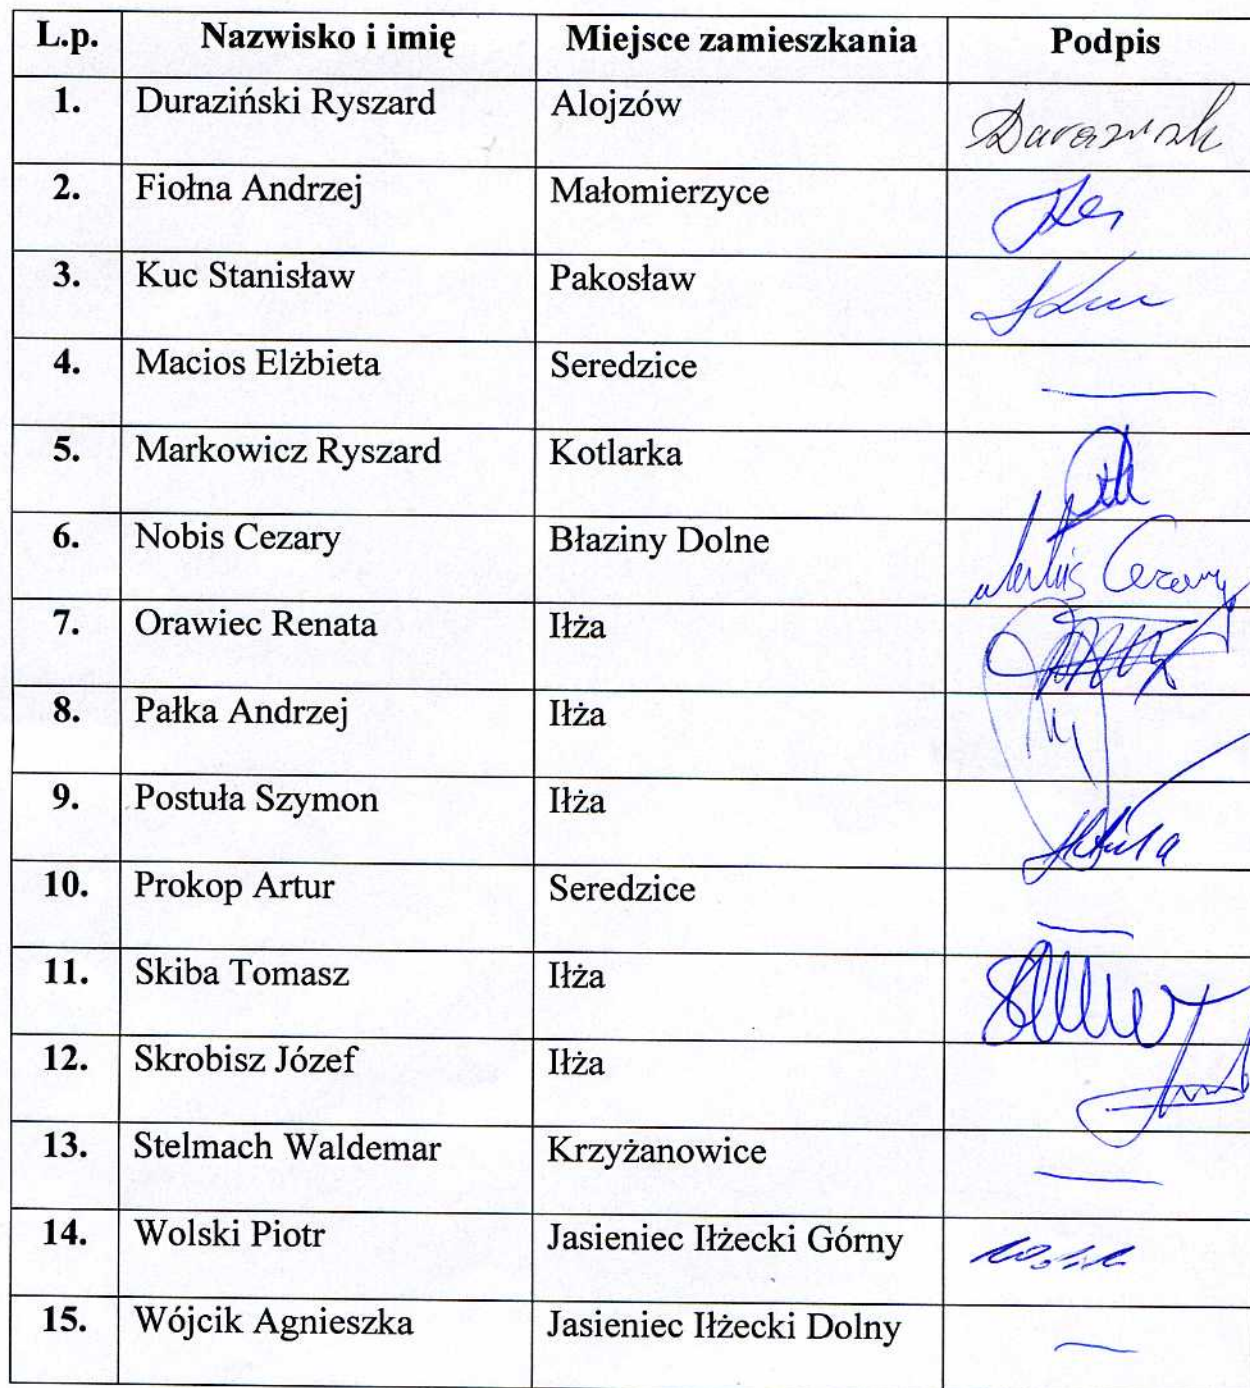 L.p. Nazwisko i imię Miejsce zamieszkania Podpis
1. Duraziński Ryszard Alojzów
2. Fiołna Andrzej Małomierzyce
3. Kuc Stanisław Pakosław
4. Macios Elżbieta Seredzice —
5. Markowicz Ryszard Kotlarka
6. Nobis Cezary Błaziny Dolne Cezary
7. Orawiec Renata Iłża
8. Pałka Andrzej Iłża
9. Postuła Szymon Iłża
10. Prokop Artur Seredzice —
11. Skiba Tomasz Iłża
12. Skrobisz Józef Iłża
13. Stelmach Waldemar Krzyżanowice —
14. Wolski Piotr Jasieniec Iłżecki Górny
15. Wójcik Agnieszka Jasieniec Iłżecki Dolny —